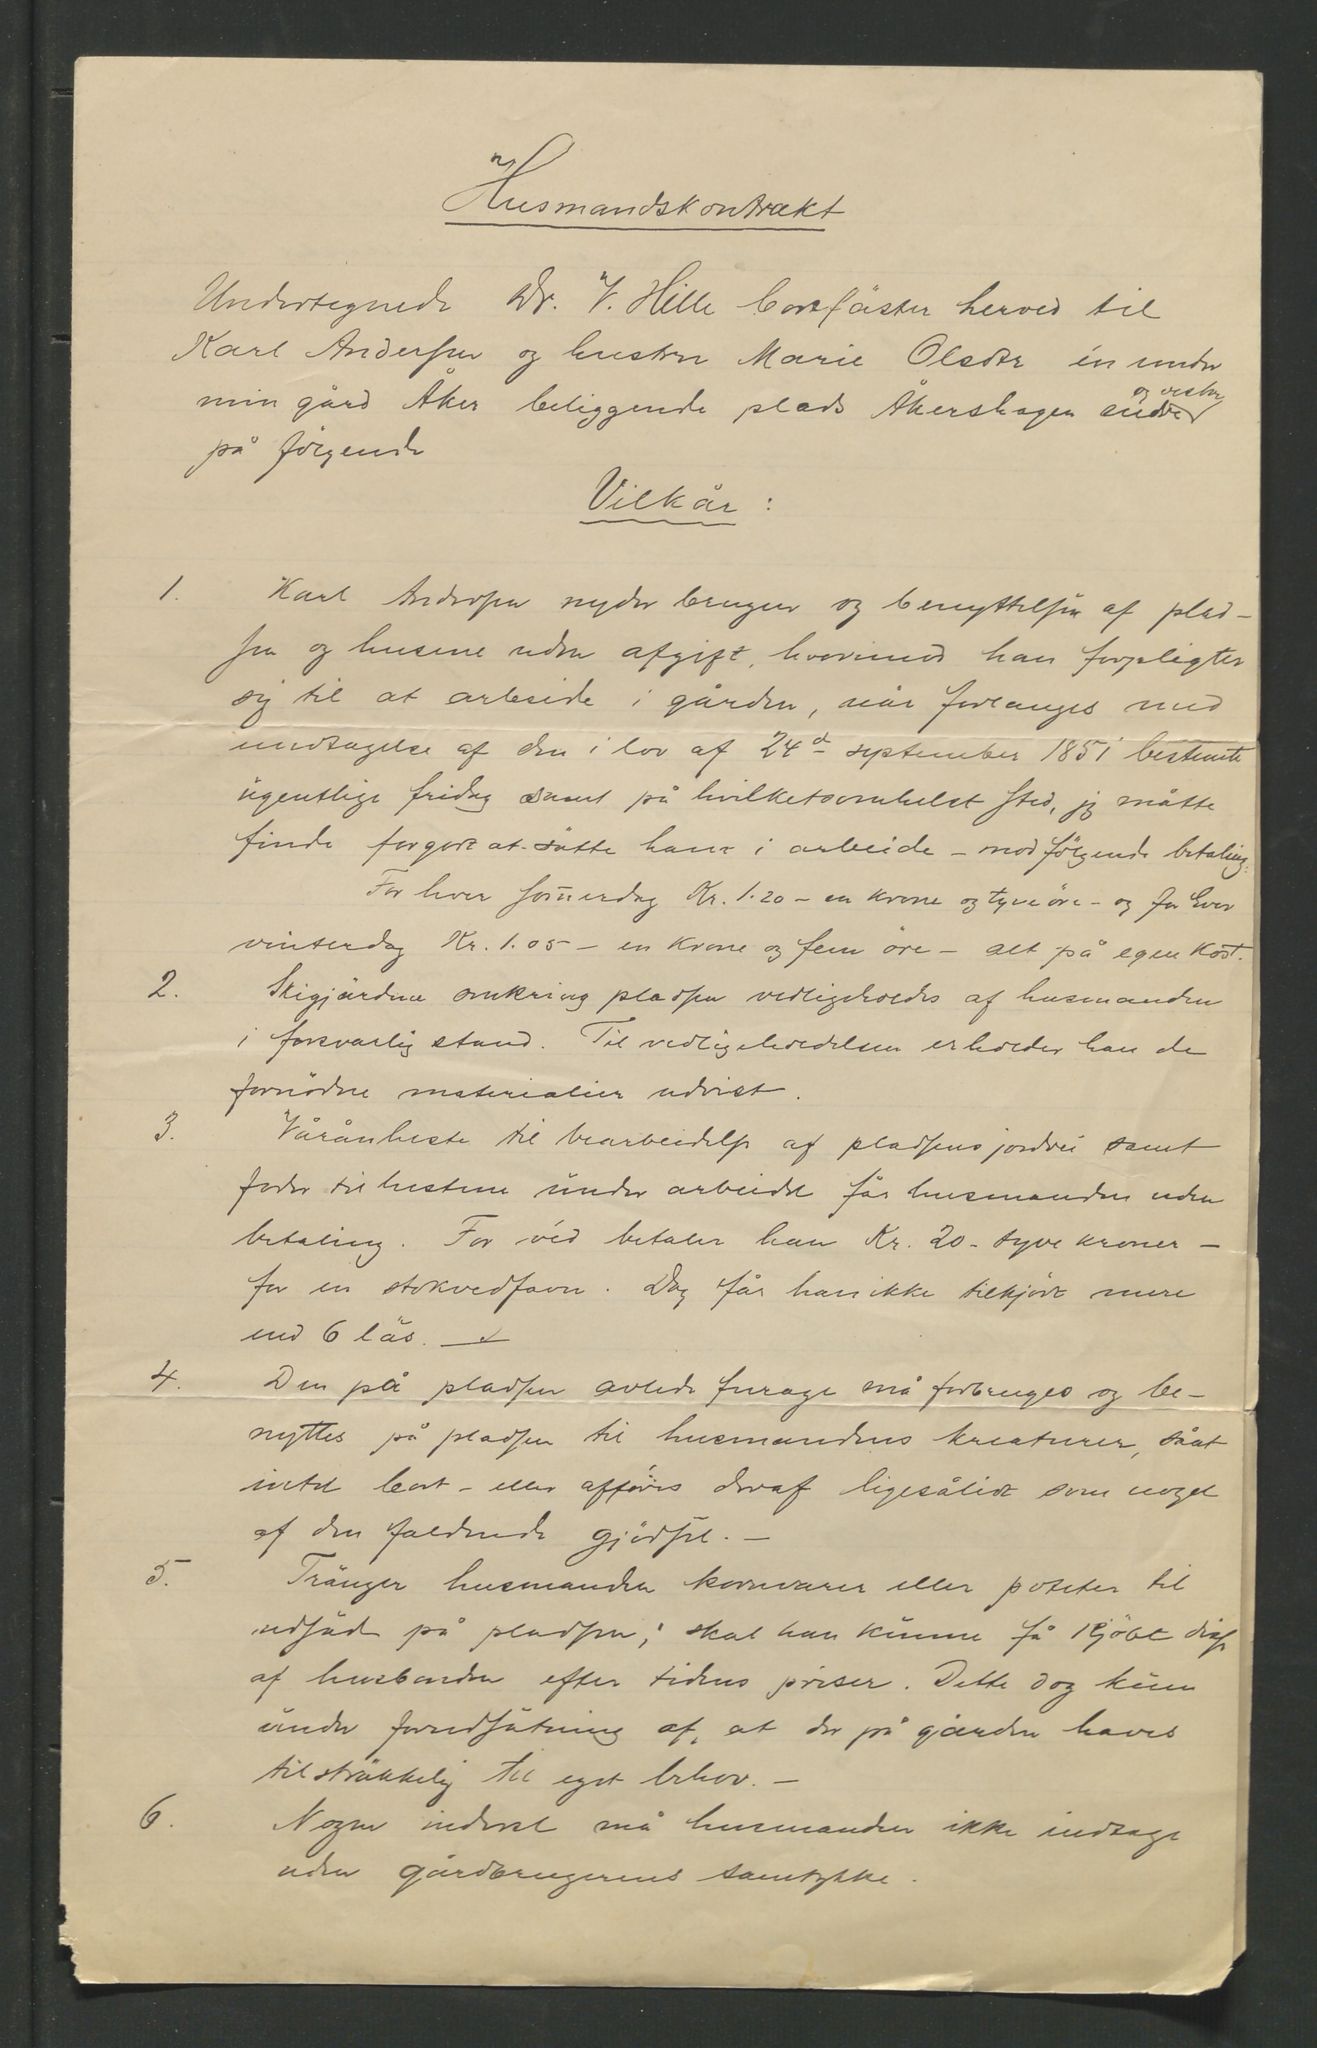 Husmandskontrakt
Undertegnede Dr. V. Hille bortfäster herved til
Karl Andersen og hustru Marie Olsdtr én under
min gård Åker beliggende plads Åkershagen søndre og vestre
på følgende
Vilkår:
1. Karl Andersen nyder brugen og benyttelsen af plad-
sen og husene uden afgift, hvorimod han forpligter
sig til at arbeide i gården, når forlanges med
undtagelse af den i lov af 24d september 1851 bestemte
ugentlige fridag samt på hvilketsomhelst sted, jeg måtte
finde forgodt at sätte ham i arbeide – mod følgende betaling:
For hver som̄erdag Kr. 1.20 – en krone og tyve öre – og for hver
vinterdag Kr. 1.05 – en krone og fem öre – alt på egen kost.
2. Skigjärdene omkring pladsen vedligeholdes af husmanden
i forsvarlig stand. Til vedligeholdelsen erholder han de
fornödne materialier udvist.
3. Vårånheste til bearbeidelse af pladsens jordvei samt
foder til hestene under arbeidet får husmanden uden
betaling. For véd betaler han Kr. 20 – tyve kroner –
for en stokvedfavn. Dog får han ikke tilkjört mere
end 6 läs.
4. Den på pladsen avlede furage må forbruges og be-
nyttes på pladsen til husmandens kreaturer, såat
intet bort- eller afføres deraf ligesålidt som noget
af den faldende gjödsel. –
5. Tränger husmanden kornvarer eller poteter til
udsäd på pladsen, skal han kunne få kjöbt disse
af husbonden efter tidens priser. Dette dog kun
under forudsätning af, at der på gården haves
tilsträkkelig til eget behov. –
6. Nogen inderst må husmanden ikke indtage
uden gårdbrugerens samtykke.